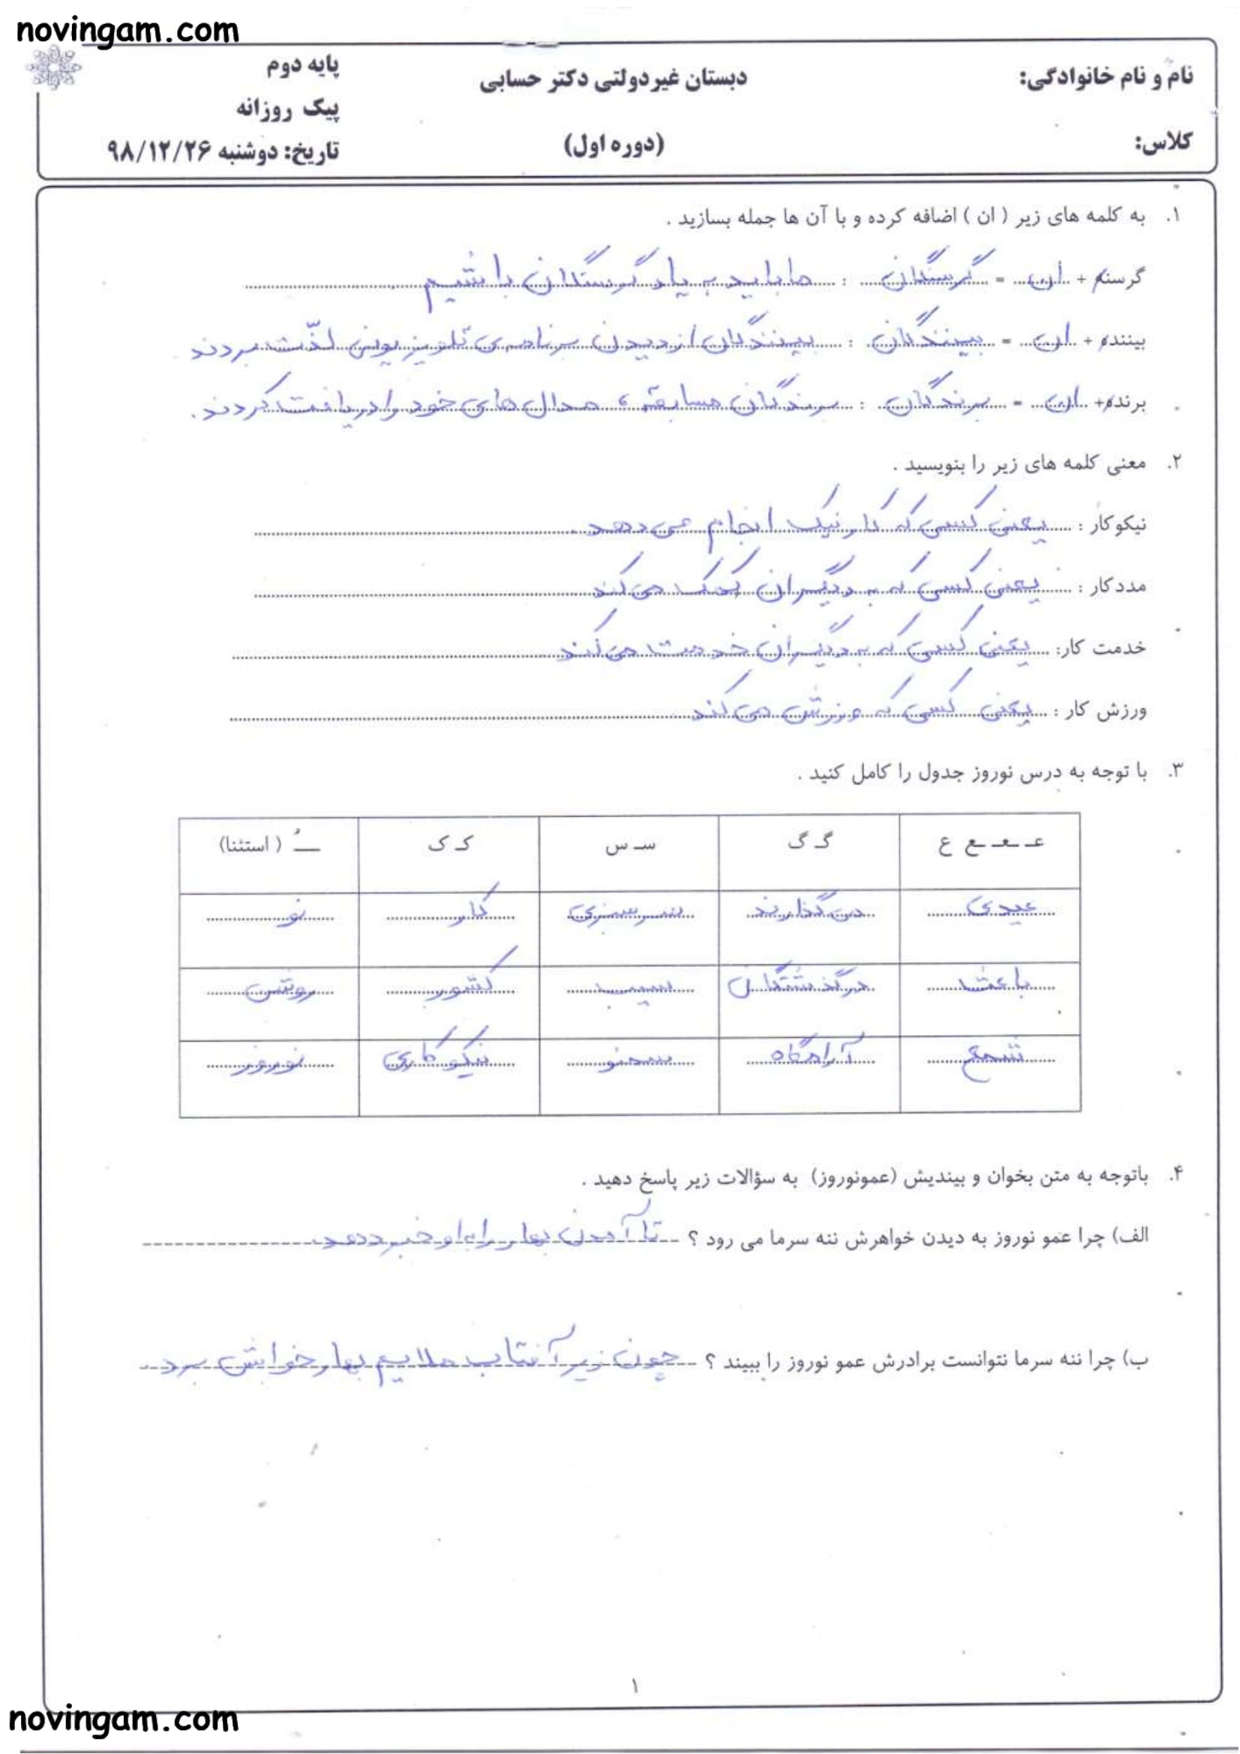 novingam.com
نام و نام خانوادگی: دبستان غیردولتی دکتر حسابی پایه دوم
پیک روزانه
کلاس: (دوره اول) تاریخ: دوشنبه ۹۸/۱۲/۲۶
۱. به کلمه های زیر ( ان ) اضافه کرده و با آن ها جمله بسازید .
گرسنه + ان = گرسنگان : ما باید به یاد گرسنگان باشیم
بیننده + ان = بینندگان : بینندگان از دیدن برنامه ی تلویزیونی لذّت بردند
برنده + ان = برندگان : برندگان مسابقه ، مدال های خود را دریافت کردند.
۲. معنی کلمه های زیر را بنویسید .
نیکوکار : یعنی کسی که کار نیک انجام می دهد
مددکار : یعنی کسی که به دیگران کمک می کند
خدمت کار: یعنی کسی که به دیگران خدمت می کند
ورزش کار : یعنی کسی که ورزش می کند
۳. با توجه به درس نوروز جدول را کامل کنید .
عـ ـعـ ـع ع گـ گ سـ س کـ ک ـُ ( استثنا)
عیدی می گذارند سرسبزی کار نو
باعث درگذشتگان سیب کشور روشن
شمع آرامگاه سمنو نیکوکاری نوروز
۴. باتوجه به متن بخوان و بیندیش (عمونوروز) به سؤالات زیر پاسخ دهید .
الف) چرا عمو نوروز به دیدن خواهرش ننه سرما می رود ؟ تا آمدن بهار را به او خبر دهد.
ب) چرا ننه سرما نتوانست برادرش عمو نوروز را ببیند ؟ چون زیر آفتاب ملایم بهار خوابش برد.
۱
novingam.com